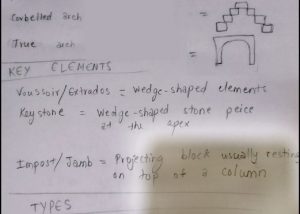 Corbelled arch =
True arch =
KEY ELEMENTS
Voussoir/Extrados = wedge-shaped elements
Keystone = wedge-shaped stone peice
at the apex
Impost/Jamb = Projecting block usually resting
on top of a column
TYPES